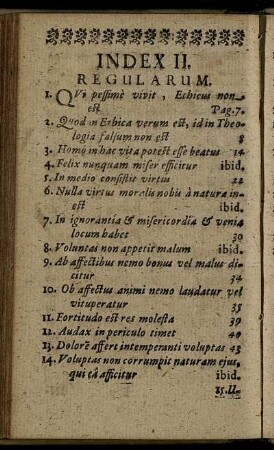 INDEX II.
REGULARUM.
1. QVi pessimè vivit, Ethicus non
est Pag. 7.
2. Quod in Ethica verum est, id in Theo-
logia falsum non est 8
3. Homo in hac vita potest esse beatus 14
4. Felix nunquam miser efficitur ibid.
5. In medio consistit virtus 22
6. Nulla virtus moralis nobis à natura in-
est ibid.
7. In ignorantia & misericordia & venia
locum habet 30
8. Voluntas non appetit malum ibid.
9. Ab affectibus nemo bonus vel malus di-
citur 34
10. Ob affectus animi nemo laudatur vel
vituperatur 35
11. Fortitudo est res molesta 39
12. Audax in periculo timet 40
13. Dolorē affert intemperanti voluptas 43
14. Voluptas non corrumpit naturam ejus,
qui eâ afficitur ibid.
15. II-